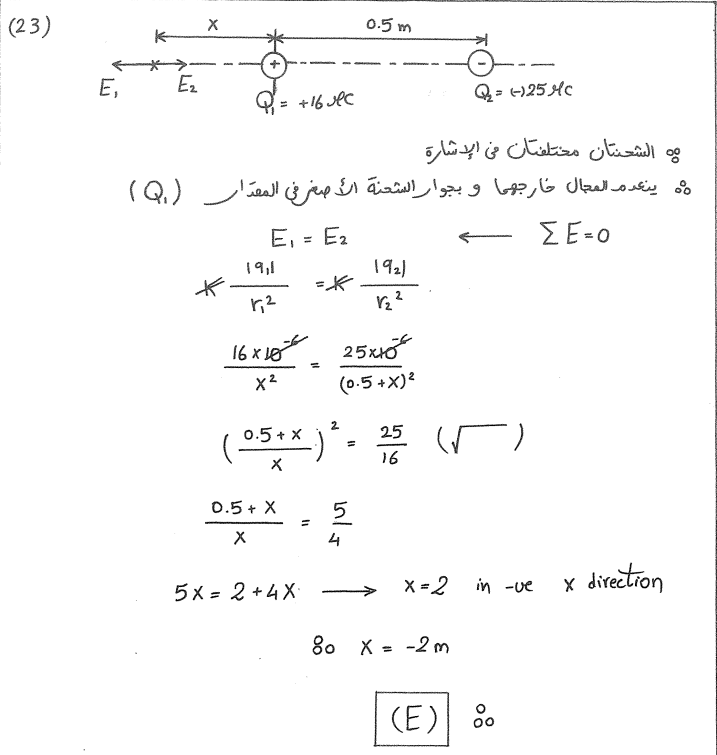 (23)
x 0.5 m
E₁ E₂ + -
Q₁ = +16 μC Q₂ = (-)25 μC
∵ الشحنتان مختلفتان في الإشارة
∴ ينعدم المجال خارجهما و بجوار الشحنة الأصغر في المقدار (Q₁)
E₁ = E₂ ← ΣE = 0
K |q₁| / r₁² = K |q₂| / r₂²
16 x 10⁻⁶ / x² = 25 x 10⁻⁶ / (0.5 + x)²
( 0.5 + x / x )² = 25 / 16 (√ )
0.5 + x / x = 5 / 4
5x = 2 + 4x → x = 2 in -ve x direction
∴ x = -2 m
(E) ∴